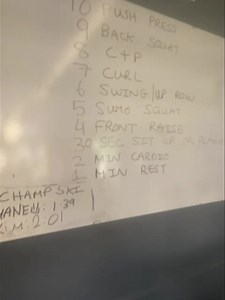 10 PUSH PRESS
9 BACK SQUAT
8 C+P
7 CURL
6 SWING/UP ROW
5 SUMO SQUAT
4 FRONT RAISE
30 SEC SIT UP OR PLANK
2 MIN CARDIO
1 MIN REST
CHAMP SKI
1:39
2:01